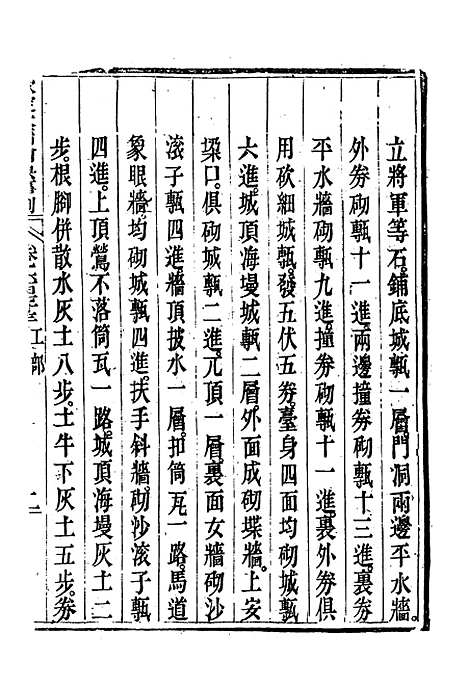 立將軍等石。鋪底城甎一層。門洞兩邊平水牆。
外券砌甎十一進。兩邊撞券砌甎十三進。裏券
平水牆砌甎九進。撞券砌甎十一進。裏外券俱
用砍細城甎。發五伏五券。臺身四面均砌城甎
六進。城頂海墁城甎二層。外面成砌堞牆。上安
梁口。俱砌城甎二進。兀頂一層。裏面女牆砌沙
滚子甎四進。牆頂披水一層。扣筒瓦一路。馬道
象眼牆均砌城甎四進。扶手斜牆。砌沙滚子甎
四進。上頂鷟不落筒瓦一路。城頂海墁灰土二
步。根腳併散水灰土八步。土牛下灰土五步。券
工部